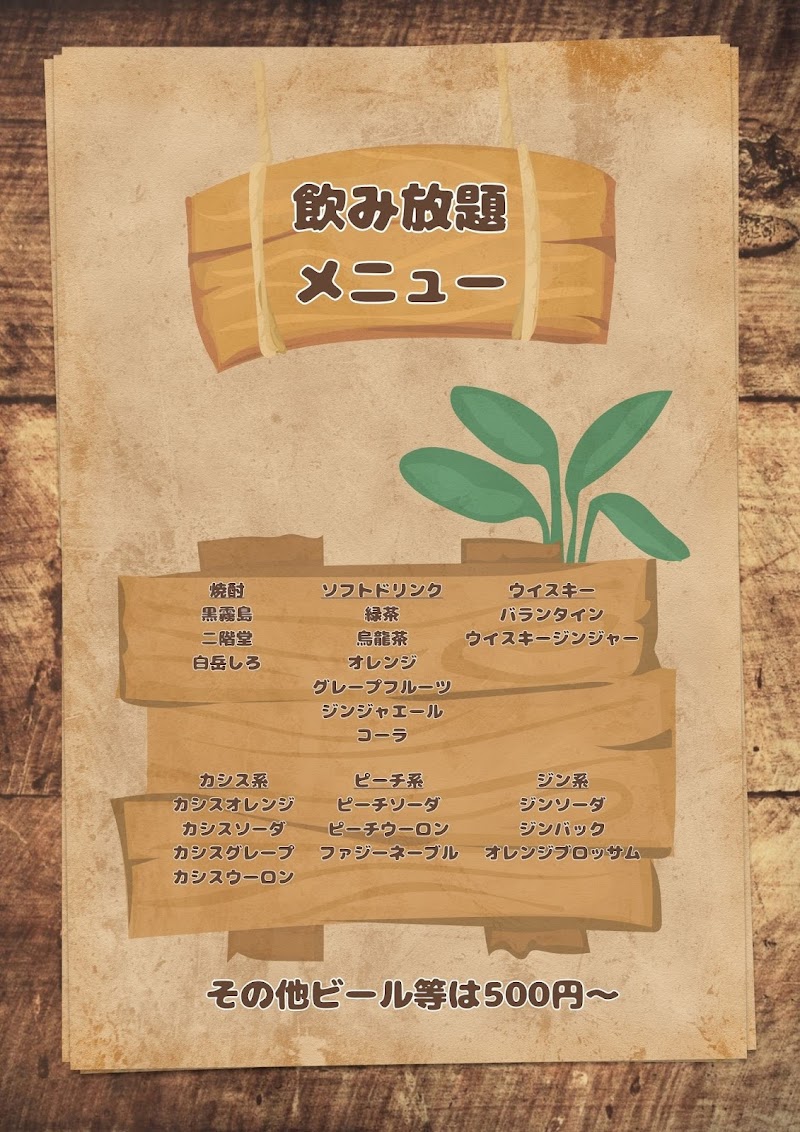 飲み放題
メニュー
焼酎
黒霧島
二階堂
白岳しろ
ソフトドリンク
緑茶
烏龍茶
オレンジ
グレープフルーツ
ジンジャエール
コーラ
ウイスキー
バランタイン
ウイスキージンジャー
カシス系
カシスオレンジ
カシスソーダ
カシスグレープ
カシスウーロン
ピーチ系
ピーチソーダ
ピーチウーロン
ファジーネーブル
ジン系
ジンソーダ
ジンバック
オレンジブロッサム
その他ビール等は500円～